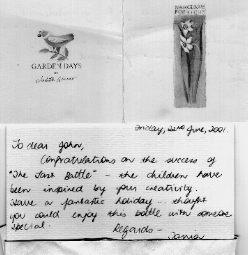 GARDEN DAYS
Friday, 22nd June, 2001.
To dear John,
Congratulations on the success of
"The Task Battle" - the children have
been inspired by your creativity.
Have a fantastic holiday - thought
you could enjoy this bottle with someone
special.
Regards -
Tania